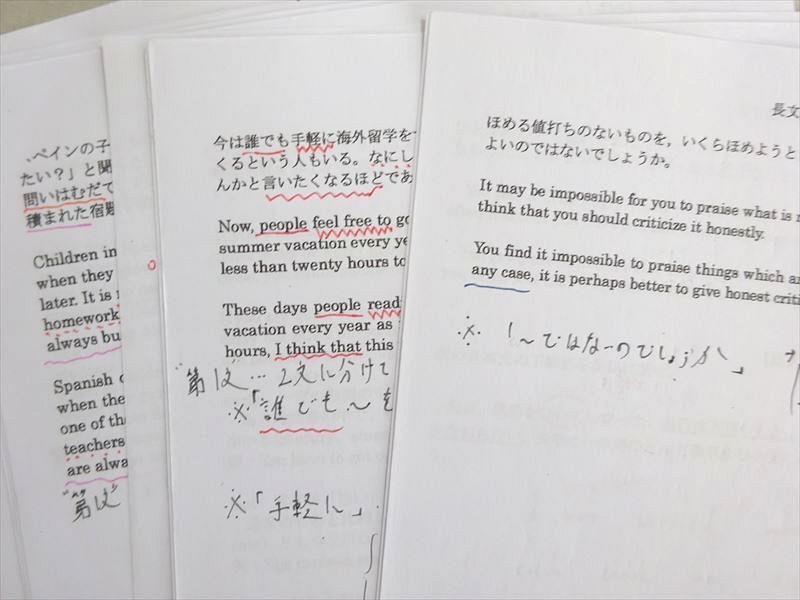 、ペインの子
たい？」と聞
問いはむだて
積まれた宿題
Children in
when they
later. It is
homework
always bu
Spanish
when the
one of th
teachers
are alwa
"第1文"
今は誰でも手軽に海外留学を
くるという人もいる。なにし
んかと言いたくなるほどであ
Now, people feel free to go
summer vacation every ye
less than twenty hours to
These days people read
vacation every year as
hours, I think that this
第1文…2文に分けて
※「誰でも〜を
※「手軽に」.
長文
ほめる値打ちのないものを，いくらほめようと
よいのではないでしょうか。
It may be impossible for you to praise what is
think that you should criticize it honestly.
You find it impossible to praise things which ar
any case, it is perhaps better to give honest criti
※「〜ではないのでしょうか」